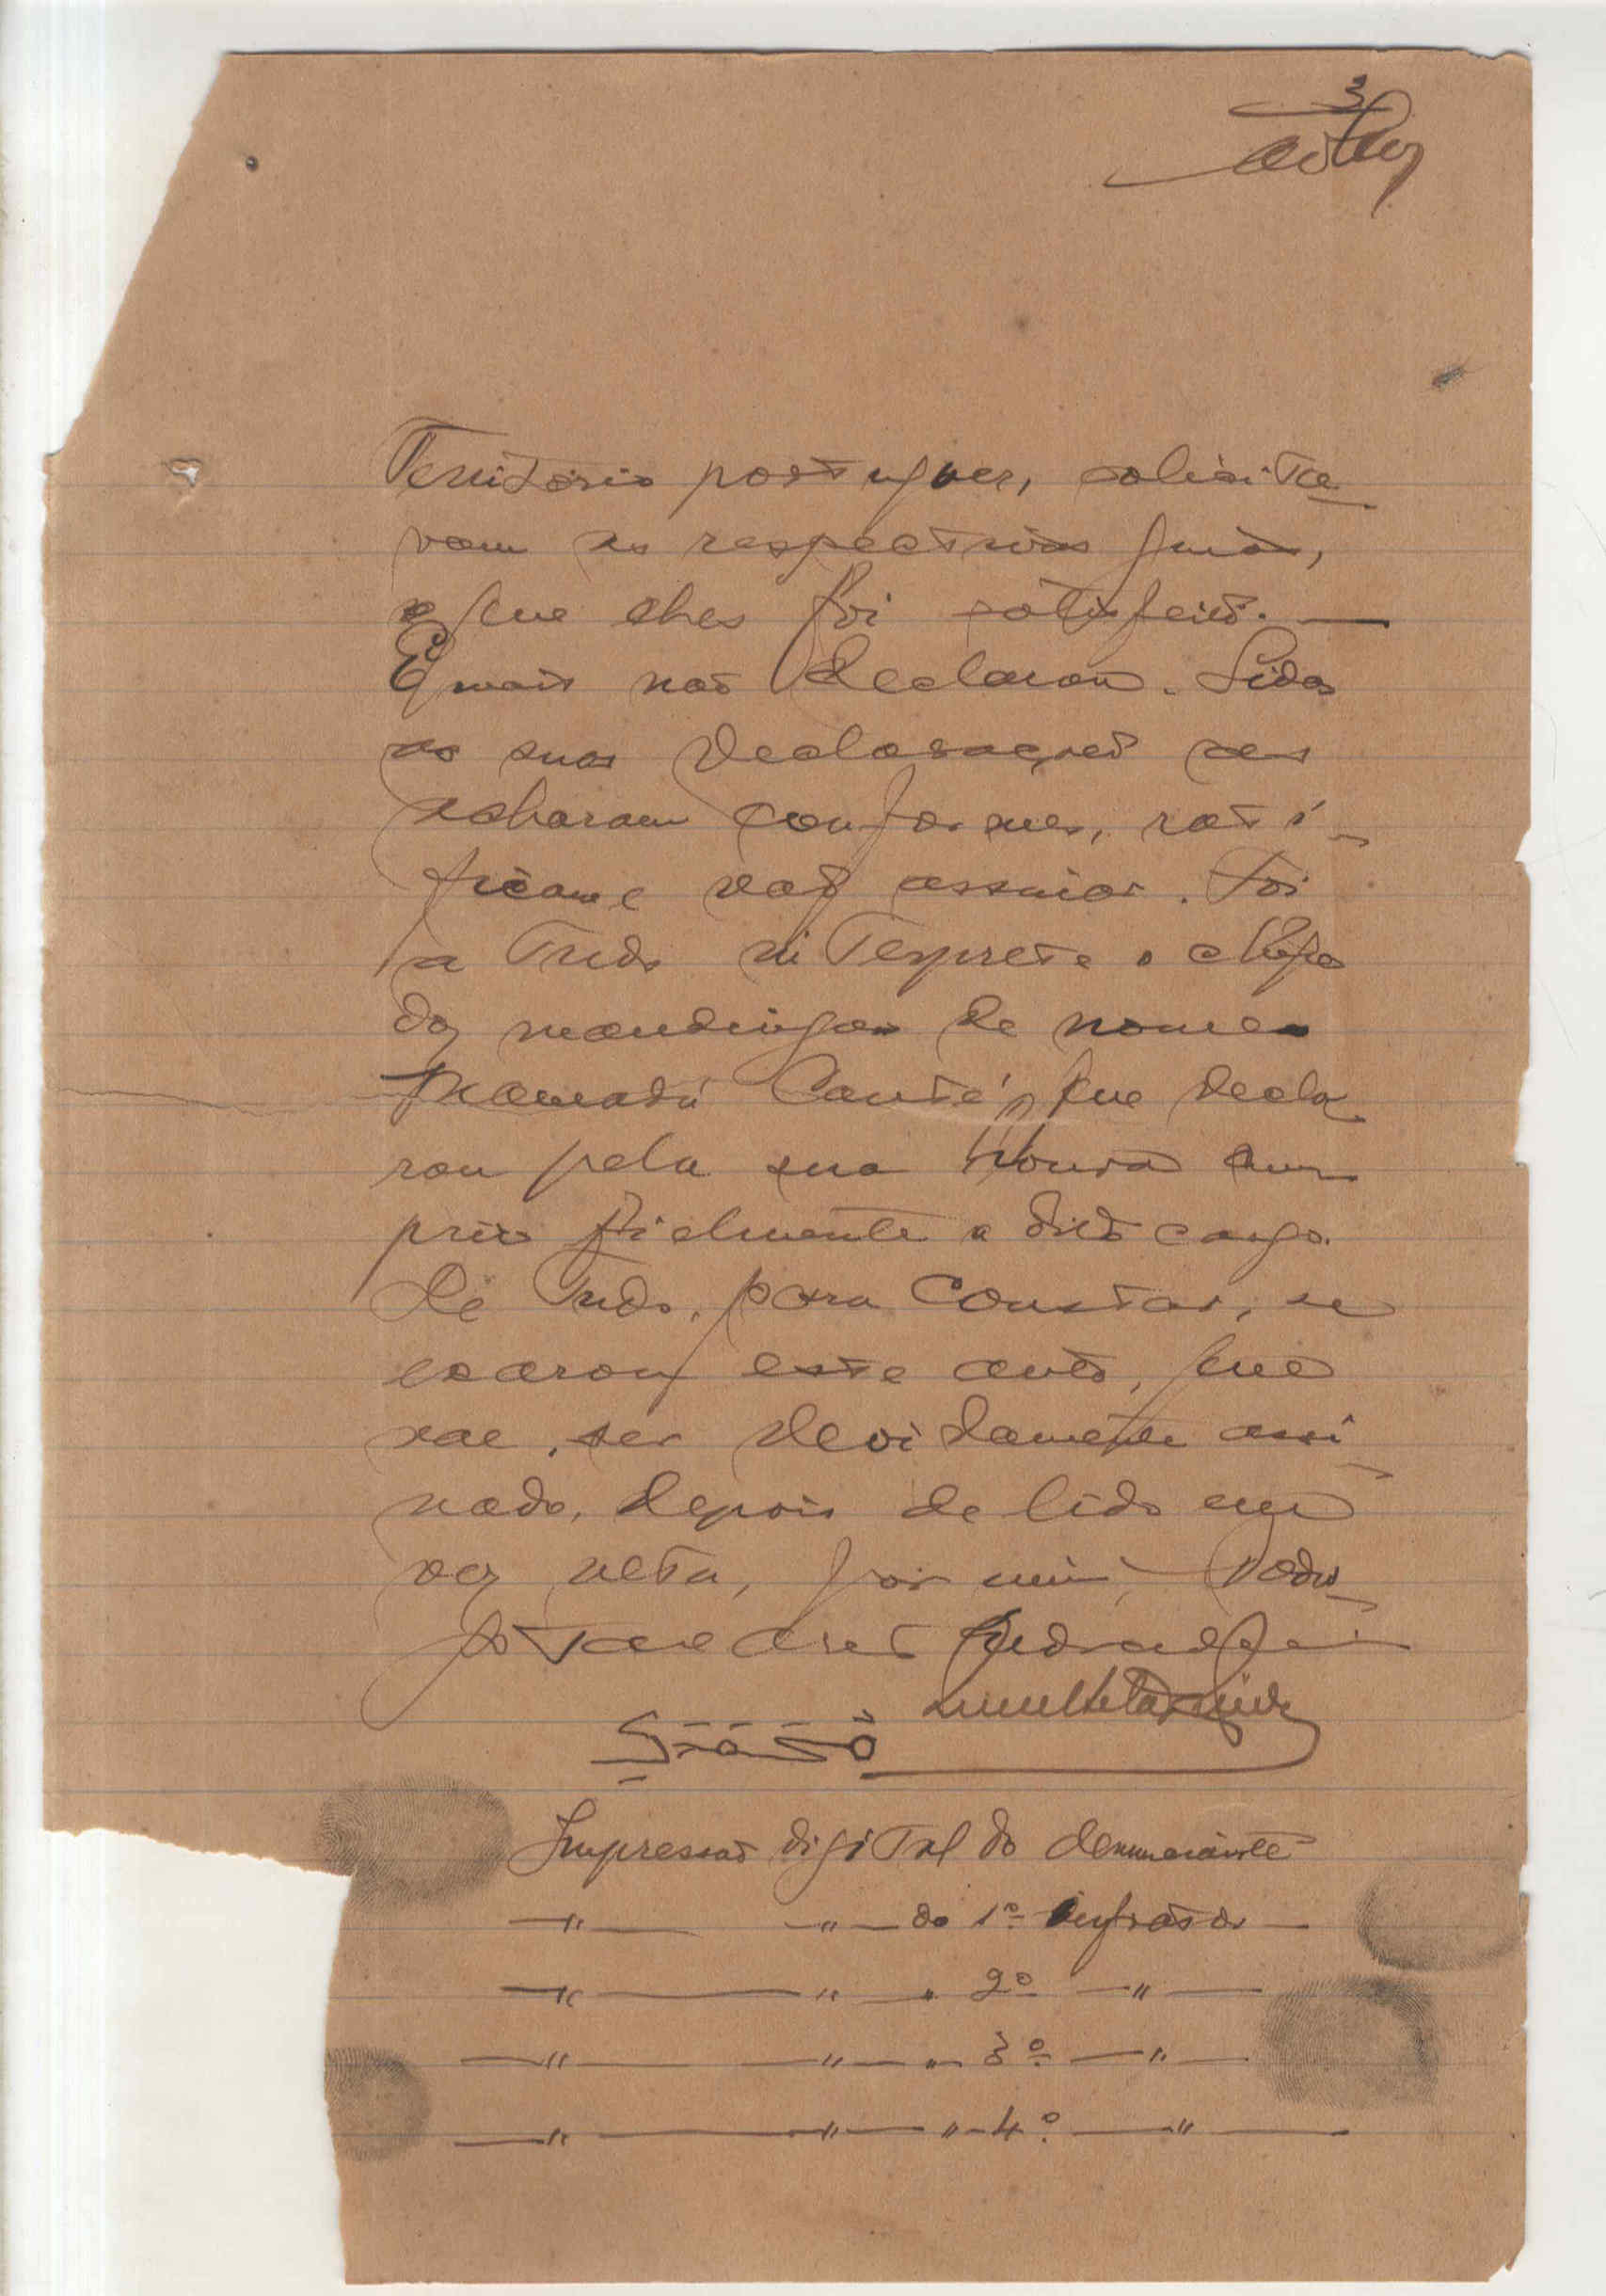 3
Territorio portuguez, solicita-
vam as respectivas guias,
o que lhes foi satisfeito. —
E mais não declarou. Lidas
as suas declarações as
acharam conformes, rati-
ficam e vão assinar. Foi
a tudo interprete o chefe
dos mandingas de nome
Mamadú Canté, que decla-
rou pela sua honra cum-
prir fielmente o dito cargo.
De tudo, para constar, se
exarou este auto, que
vae ser devidamente assi-
nado, depois de lido em
voz alta, por mim,
Tavares
Impressão digital do denunciante
—"— —"— do 1º infrator —
—"— " " 2º —"—
—"— —"— " 3º —"—
—"— —"— " 4º —"—